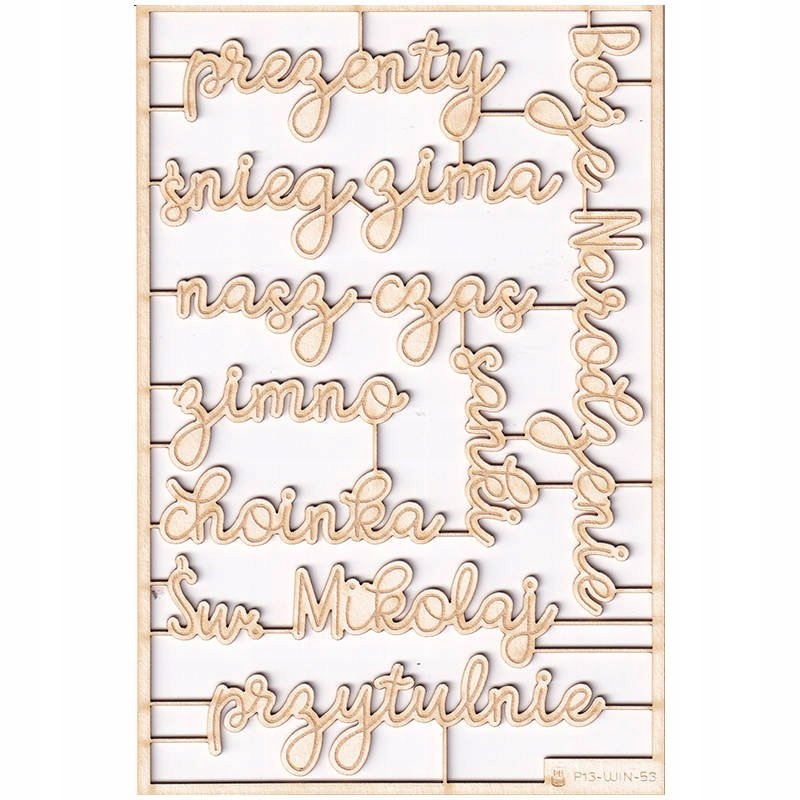 prezenty
śnieg zima
nasz czas
zimno
sanki
choinka
Św. Mikołaj
przytulnie
Boże Narodzenie
P13-WIN-53